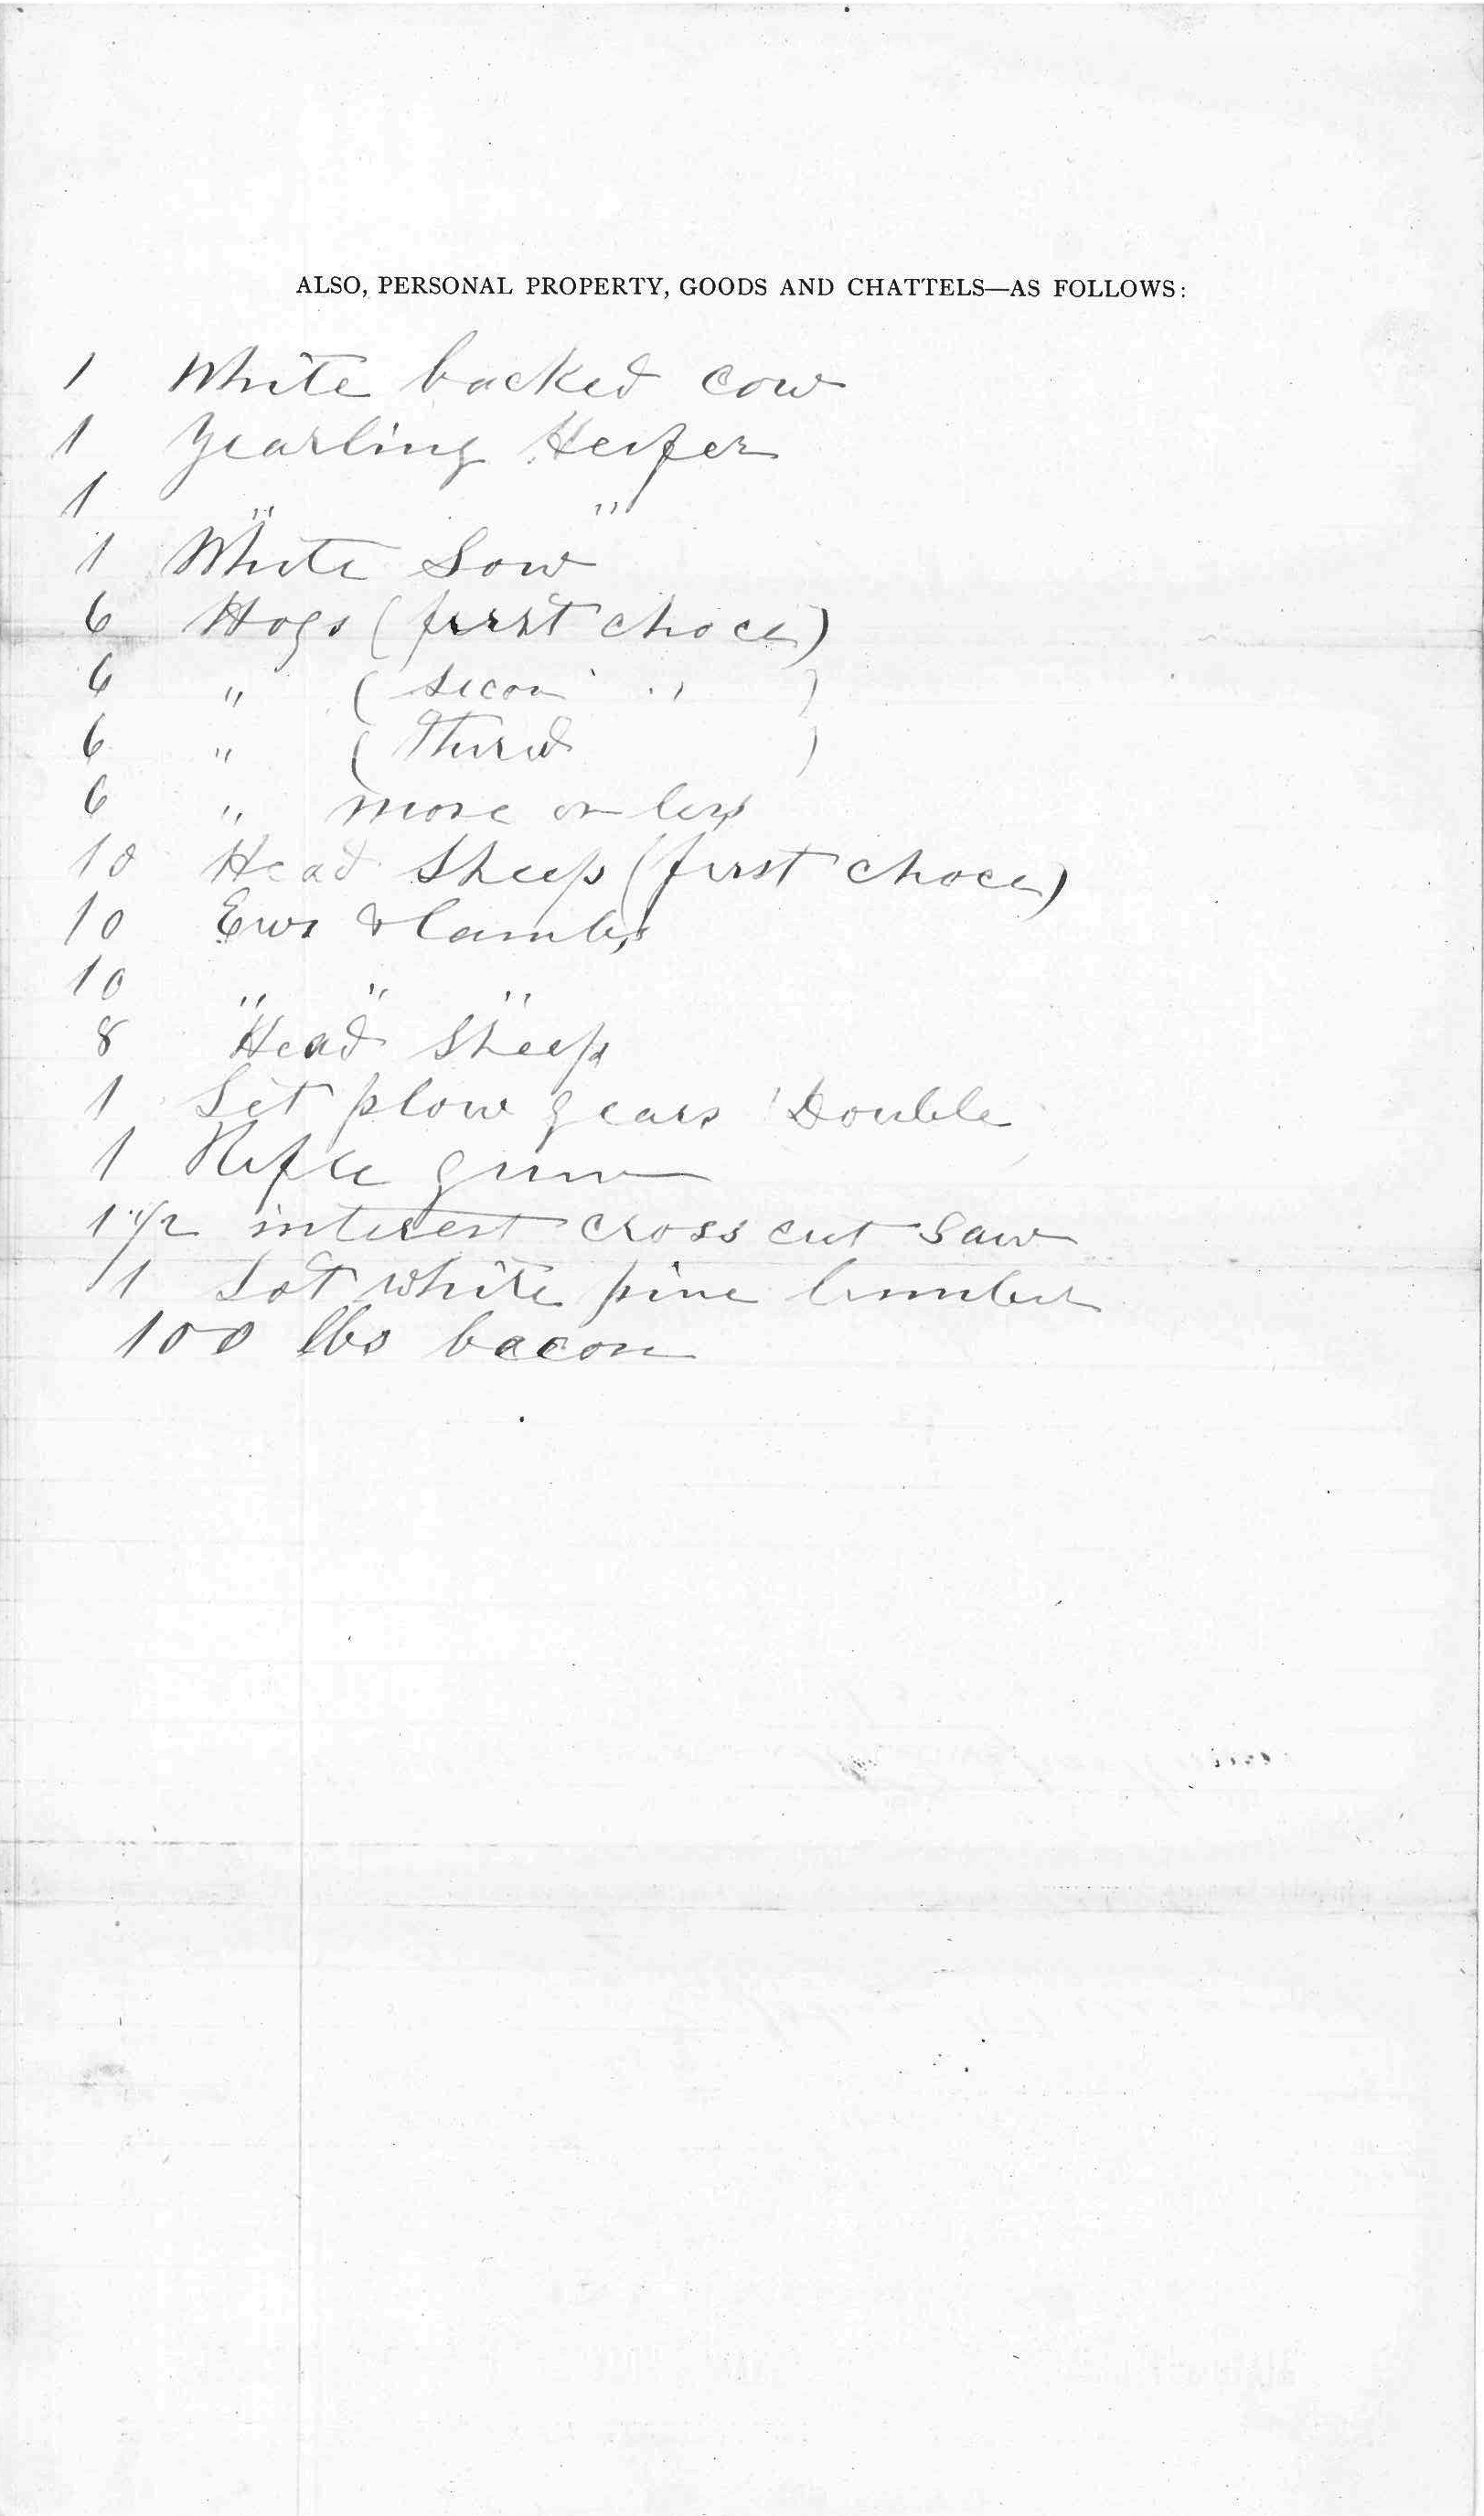 ALSO, PERSONAL PROPERTY, GOODS AND CHATTELS—AS FOLLOWS:
1 White backed cow
1 Yearling Heifer
1 " "
1 White Sow
6 Hogs (first choce)
6 " (secon " )
6 " (Third )
6 " more or less
10 Head Sheep (first choce)
10 Ews & lambs
10 " " "
8 Head Sheep
1 Set plow gears Double
1 Rifle gun
1 1/2 interest cross cut saw
1 Lot white pine lumber
100 lbs bacon